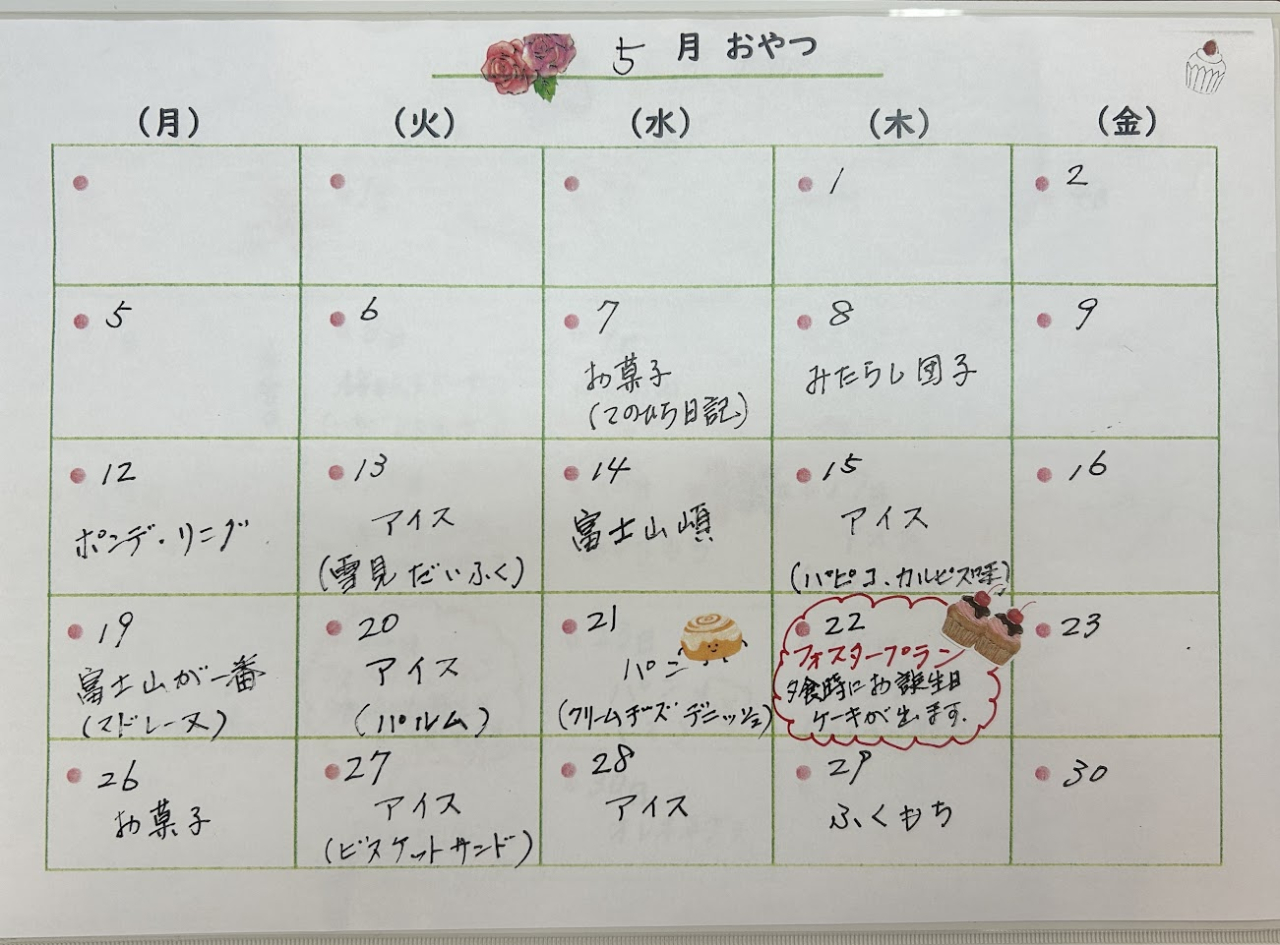 5月 おやつ
(月) (火) (水) (木) (金)
1 2
5 6 7 8 9
お菓子 みたらし団子
(てのひら日記)
12 13 14 15 16
ポンデ・リング アイス 富士山頂 アイス
(雪見だいふく) (パピコ、カルピス味)
19 20 21 22 23
富士山が一番 アイス パン フォスタープラン
(マドレーヌ) (パルム) (クリームチーズデニッシュ) 夕食時にお誕生日
ケーキが出ます.
26 27 28 29 30
お菓子 アイス アイス ふくもち
(ビスケットサンド)